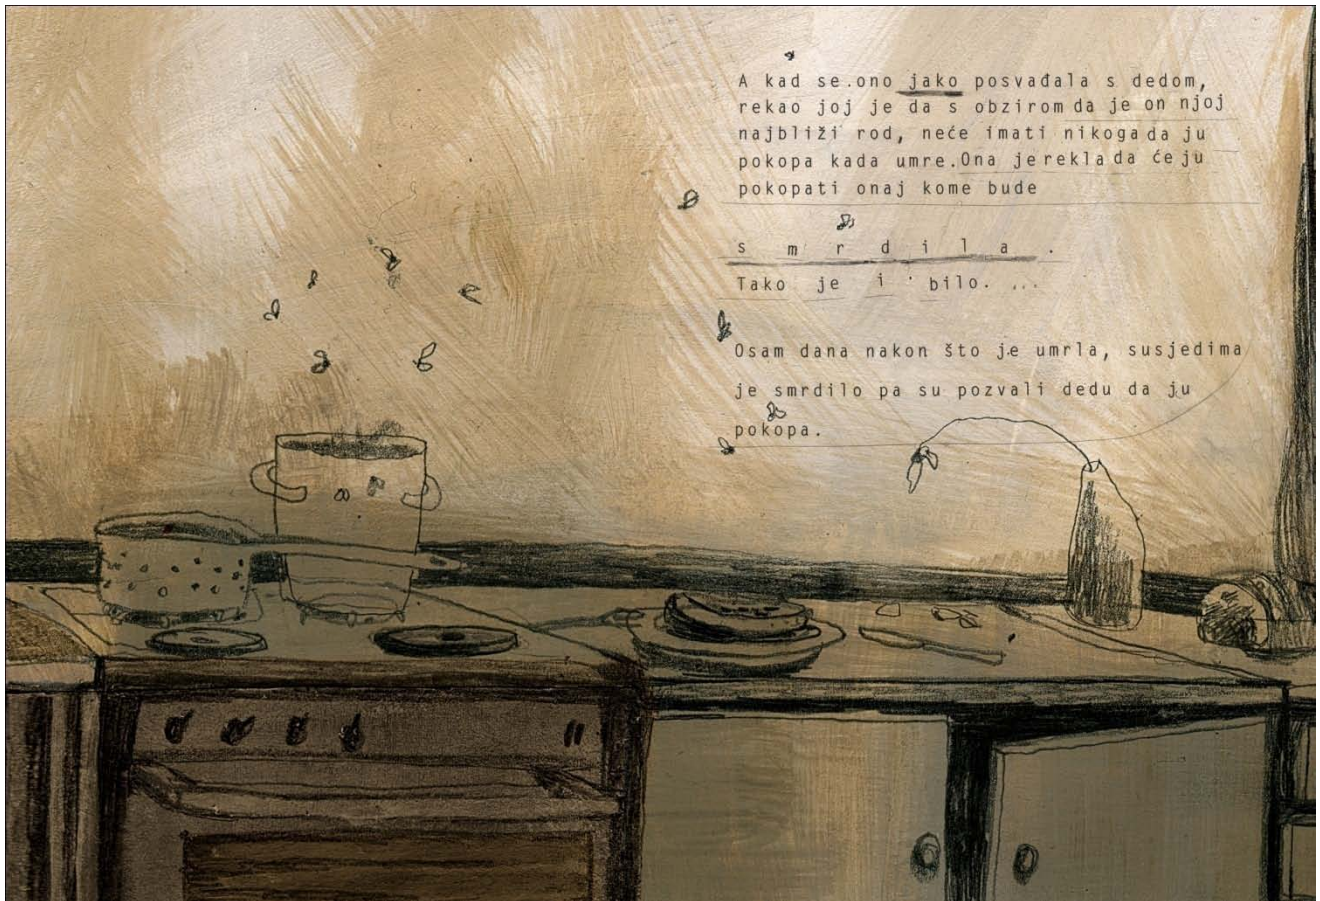 A kad se ono jako posvađala s dedom,
rekao joj je da s obzirom da je on njoj
najbliži rod, neće imati nikoga da ju
pokopa kada umre. Ona je rekla da će ju
pokopati onaj kome bude
s m r d i l a .
Tako je i bilo. ...
Osam dana nakon što je umrla, susjedima
je smrdilo pa su pozvali dedu da ju
pokopa.